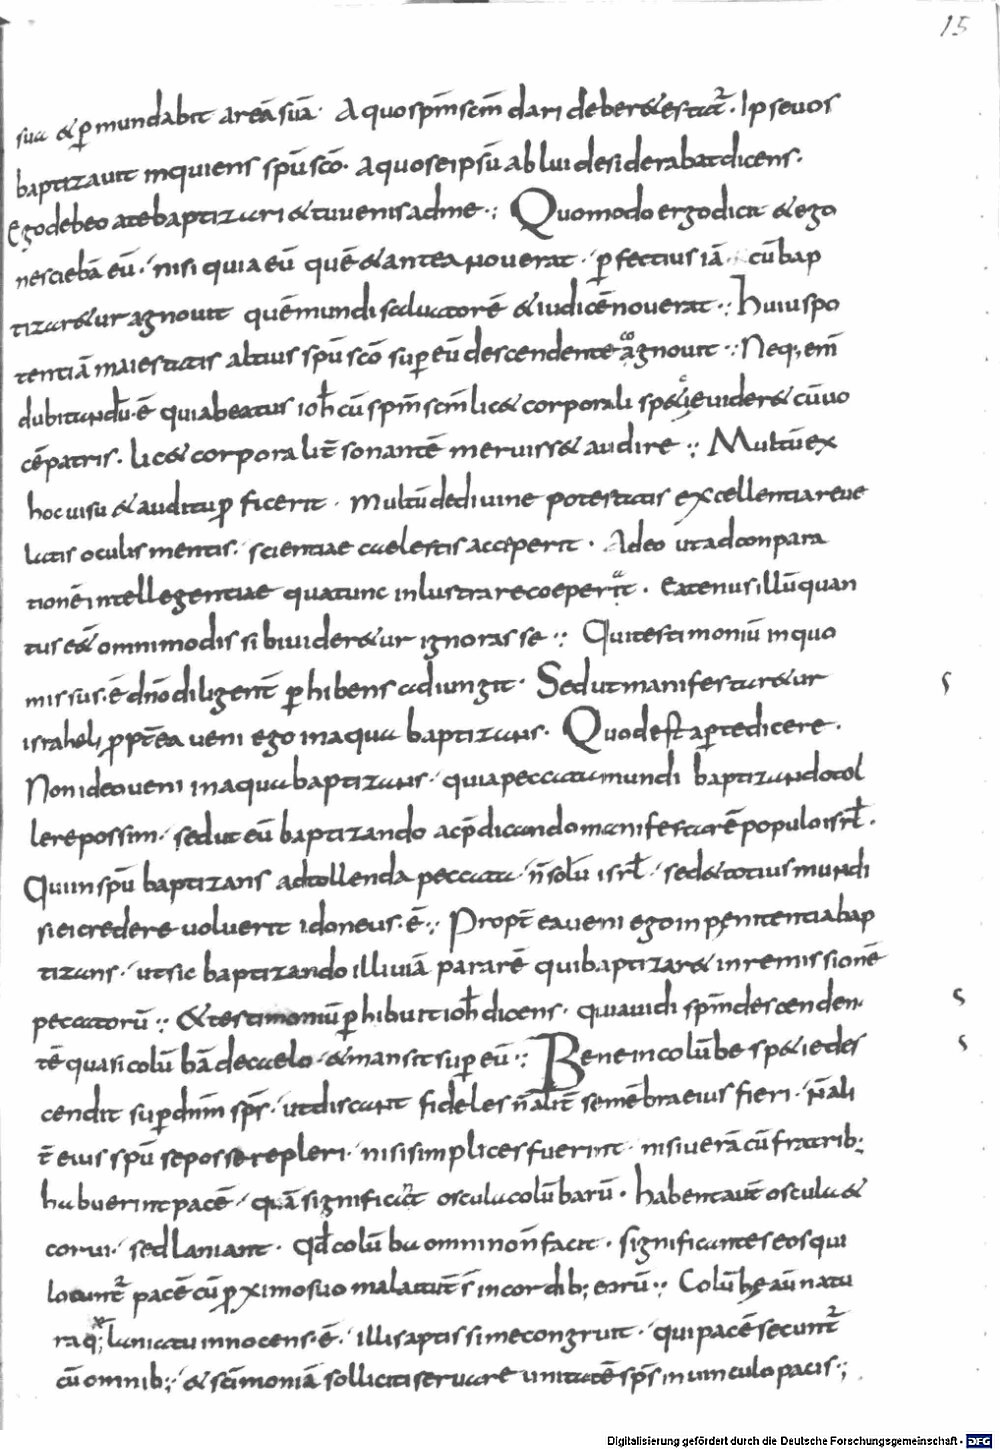 15
sua & ꝑmundabit areā suā · A quo spm̄ scm̄ dari deber& estat᷑ · Ipse uos
baptizauit inquiens spū scō · a quo se ipsū ablui desiderabat dicens ·
Ego debeo a te baptizari & tu uenis ad me ·: Quomodo ergo dicit & ego
nesciebā eū · nisi quia eū quē & antea nouerat · ꝑfectius iā cū bap
tizar&ur agnouit quē mundi saluatorē & iudicē nouerat ·: huius po
tentiā maiestatis altius spū scō sup eū descendente agnouit ·: Neq; enī
dubitandū · ē quia beatus ioh̄ cū spm̄ scm̄ lic& corporali speciē uider& cū uo
cē patris · lic& corporalit̄ sonantē meruiss& audire ·: Multū ex
hoc uisu & auditu ꝓficerit · multū de diuine potestatis excellentia reue
latis oculis mentis · scientiae caelestis acceperit · Adeo ut ad conpara
tionē intellegentiae qua tunc inlustrare coeperat · eatenus illū quan
tus ess& omnimodis sibi uider&ur ignorasse ·: Qui testimoniū in quo
missus · ē dn̄o diligent̄ ꝑhibens adiungit · Sed ut manifestar&ur
israheli ꝓpt̄ea ueni ego in aqua baptizans · Quod est aꝑte dicere ·
Non ideo ueni in aqua baptizans · quia peccata mundi baptizando tol
lere possim · sed ut eū baptizando ac p̄dicando manifestarē populo isrl̄ ·
Qui in spū baptizans ad tollenda peccata · n̄ solū isrl̄ · sed & totius mundi
si ei credere uoluerit idoneus · ē ·: Propt̄ ea ueni ego in penitentia bap
tizans · ut sic baptizando illi uiā pararē qui baptizar& in remissionē
peccatorū ·: & testimoniū ꝑhibuit ioh̄ dicens · quia uidi spm̄ descenden
tē quasi colūbā de caelo · & mansit sup eū ·: Bene in colūbe speciē des
cendit sup dn̄m sp̄s · ut discant fideles n̄ alit̄ se mēbra eius fieri · n̄ ali
t̄ eius spū se posse repleri · nisi simplices fuerint · nisi uerā cū fratrib;
habuerint pacē · quā significat oscula colūbarū · habent aut̄ oscula &
corui · sed laniant · qd̄ colūba omnino n̄ facit · significantes eos qui
locunt᷑ pacē cū ꝓximo suo mala aut̄ s̄ in cordib; eorū ·: Colūbe aū natu
ra q; laniatu innocens · ē · illis aptissime congruit · qui pacē secunt᷑
cū omnib; · & scīmoniā solliciti seruare unitatē sp̄s in uinculo pacis ·;
Digitalisierung gefördert durch die Deutsche Forschungsgemeinschaft - DFG